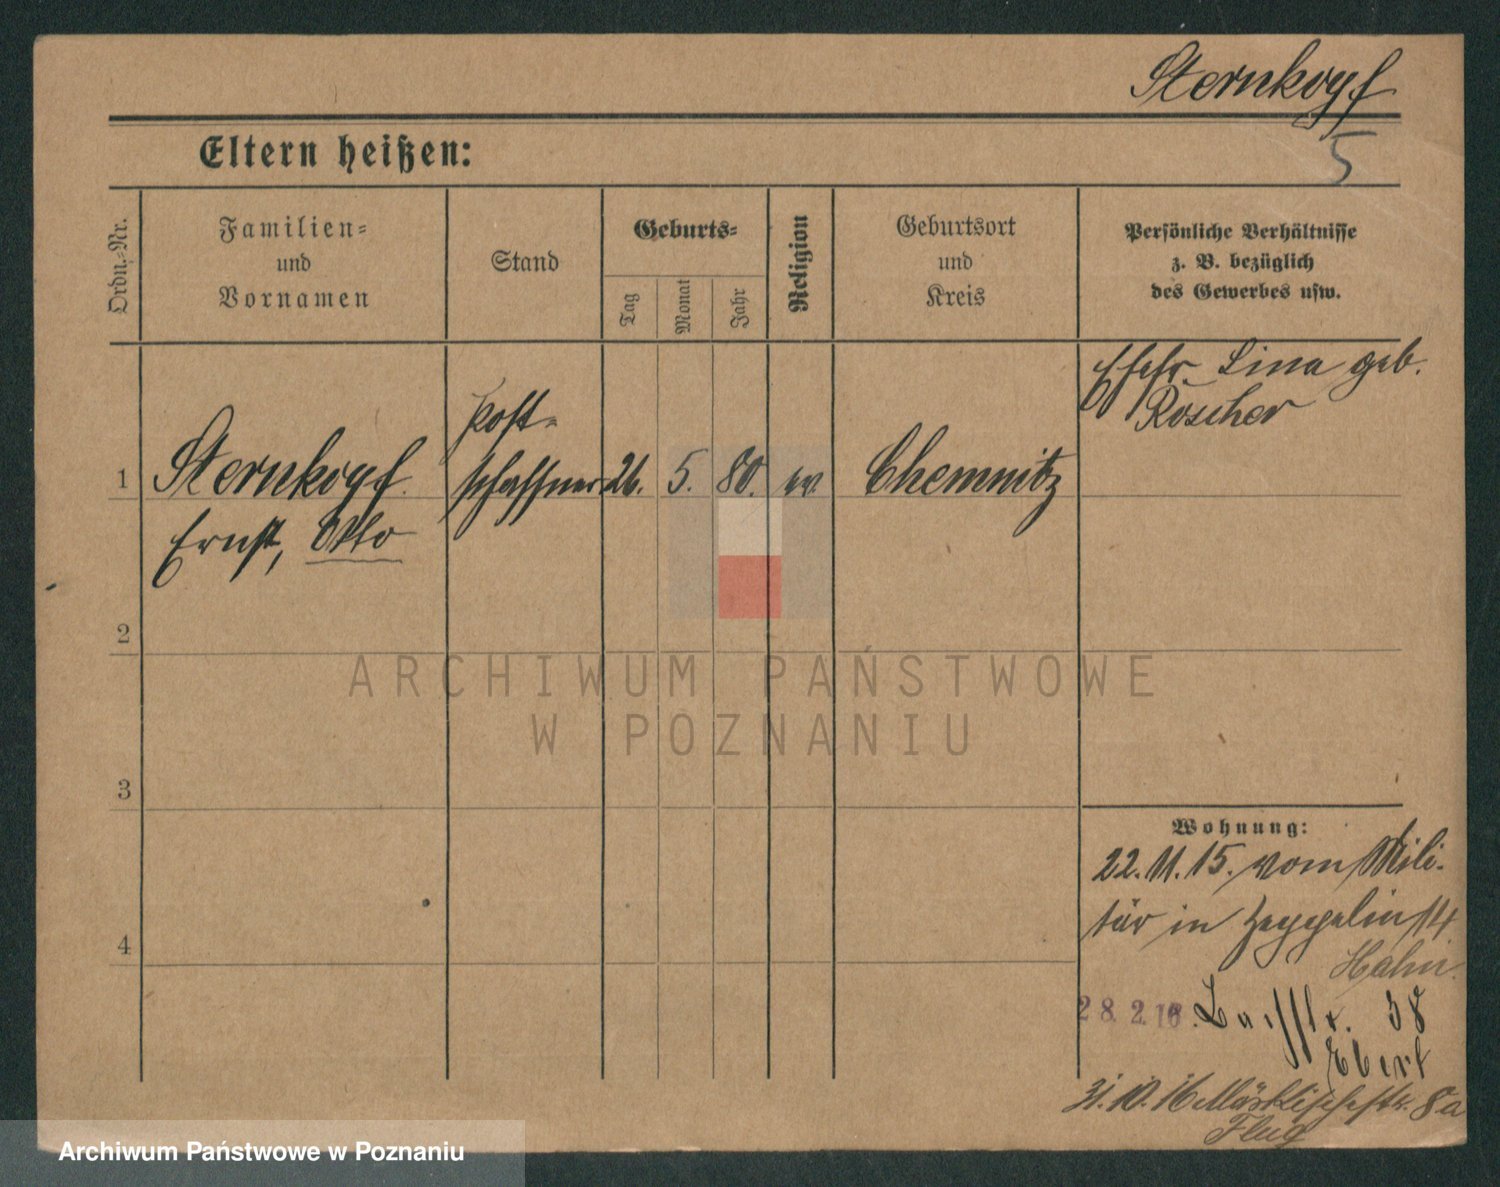 Sternkopf
5
Eltern heißen:
Ordn.=Nr.
Familien=
und
Vornamen
Stand
Geburts=
Tag
Monat
Jahr
Religion
Geburtsort
und
Kreis
Persönliche Verhältnisse
z. B. bezüglich
des Gewerbes usw.
1
Sternkopf
Ernst, Otto
Post=
schaffner
26.
5.
80.
ev.
Chemnitz
Ehefr. Lina geb.
Röscher
2
3
4
Wohnung:
22.11.15. vom Mili-
tär in Zeppelinst 4
Hahn
28.2.16.
38
Ebert
31.10.16 Märkischestr. 8a
Flug
ARCHIWUM PAŃSTWOWE
W POZNANIU
Archiwum Państwowe w Poznaniu